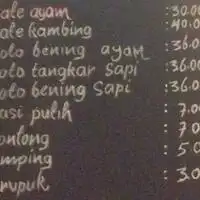 ate ayam :30.00
ate kambing :40.0
oto bening ayam :36.0
oto tangkar sapi :36.00
oto bening Sapi :36.0
asi putih : 7.00
ontong : 7 0
mping : 5 0
rupuk : 3.0